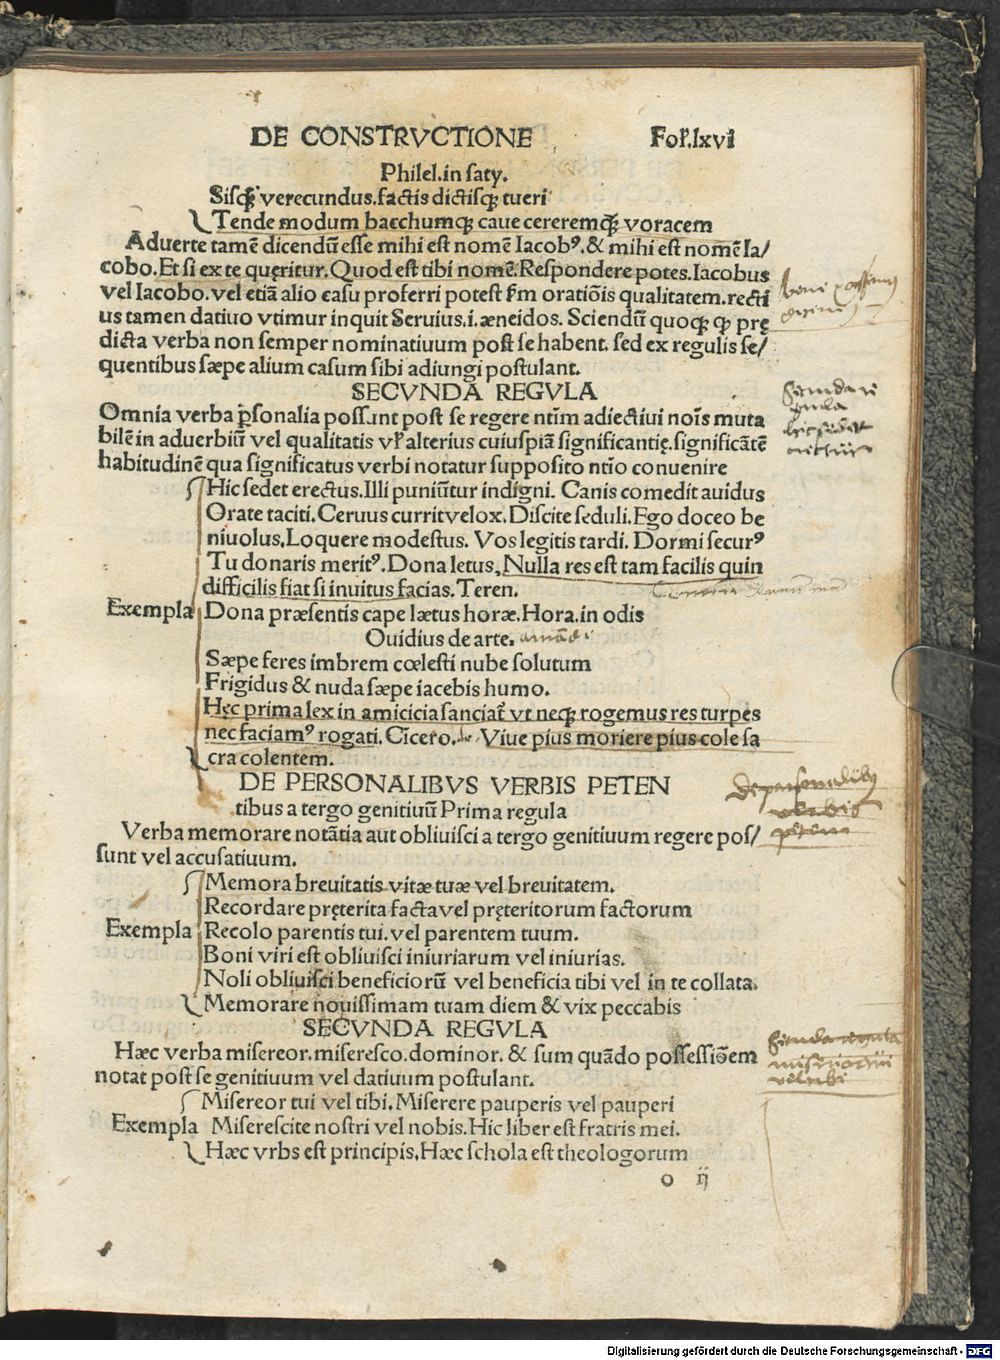 DE CONSTRVCTIONE Fol̄.lxvi
Philel.in saty.
Sisqꝫ verecundus.factis dictisqꝫ tueri
Tende modum bacchumqꝫ caue cereremqꝫ voracem
Aduerte tamē dicendū esse mihi est nomē Iacobꝰ.& mihi est nomē Ia/
cobo.Et si ex te quęritur.Quod est tibi nomē.Respondere potes.Iacobus
vel Iacobo.vel etiā alio casu proferri potest ẜm oratiōis qualitatem.recti
us tamen datiuo vtimur inquit Seruius.i.æneidos. Sciendū quoqꝫ ꝙ prę
dicta verba non semper nominatiuum post se habent. sed ex regulis se/
quentibus sæpe alium casum sibi adiungi postulant.
SECVNDA REGVLA
Omnia verba ꝑsonalia possunt post se regere ntīm adiectiui noīs muta
bilē in aduerbiū vel qualitatis vel̄ alterius cuiuspiā significantię.significātē
habitudinē qua significatus verbi notatur supposito ntīo conuenire
Hic sedet erectus.Illi puniūtur indigni. Canis comedit auidus
Orate taciti.Ceruus currit velox.Discite seduli.Ego doceo be
niuolus.Loquere modestus. Vos legitis tardi. Dormi securꝰ
Tu donaris meritꝰ.Dona letus.Nulla res est tam facilis quin
difficilis fiat si inuitus facias.Teren.
Exempla Dona præsentis cape lætus horæ.Hora.in odis
Ouidius de arte. amādi
Sæpe feres imbrem cœlesti nube solutum
Frigidus & nuda sæpe iacebis humo.
Hęc prima lex in amicicia sanciat᷑ vt neqꝫ rogemus res turpes
nec faciamꝰ rogati.Cicero. Viue pius moriere pius cole sa
cra colentem.
DE PERSONALIBVS VERBIS PETEN
tibus a tergo genitiuū Prima regula
de personalibus
verbis
peten
Verba memorare notātia aut obliuisci a tergo genitiuum regere pos/
sunt vel accusatiuum.
Memora breuitatis vitæ tuæ vel breuitatem.
Recordare pręterita facta vel pręteritorum factorum
Exempla Recolo parentis tui. vel parentem tuum.
Boni viri est obliuisci iniuriarum vel iniurias.
Noli obliuisci beneficiorū vel beneficia tibi vel in te collata.
Memorare nouissimam tuam diem & vix peccabis
SECVNDA REGVLA
Hæc verba misereor.miseresco.dominor. & sum quādo possessiōem
notat post se genitiuum vel datiuum postulant.
Misereor tui vel tibi.Miserere pauperis vel pauperi
Exempla Miserescite nostri vel nobis.Hic liber est fratris mei.
Hæc vrbs est principis.Hæc schola est theologorum
o ij
Digitalisierung gefördert durch die Deutsche Forschungsgemeinschaft - DFG